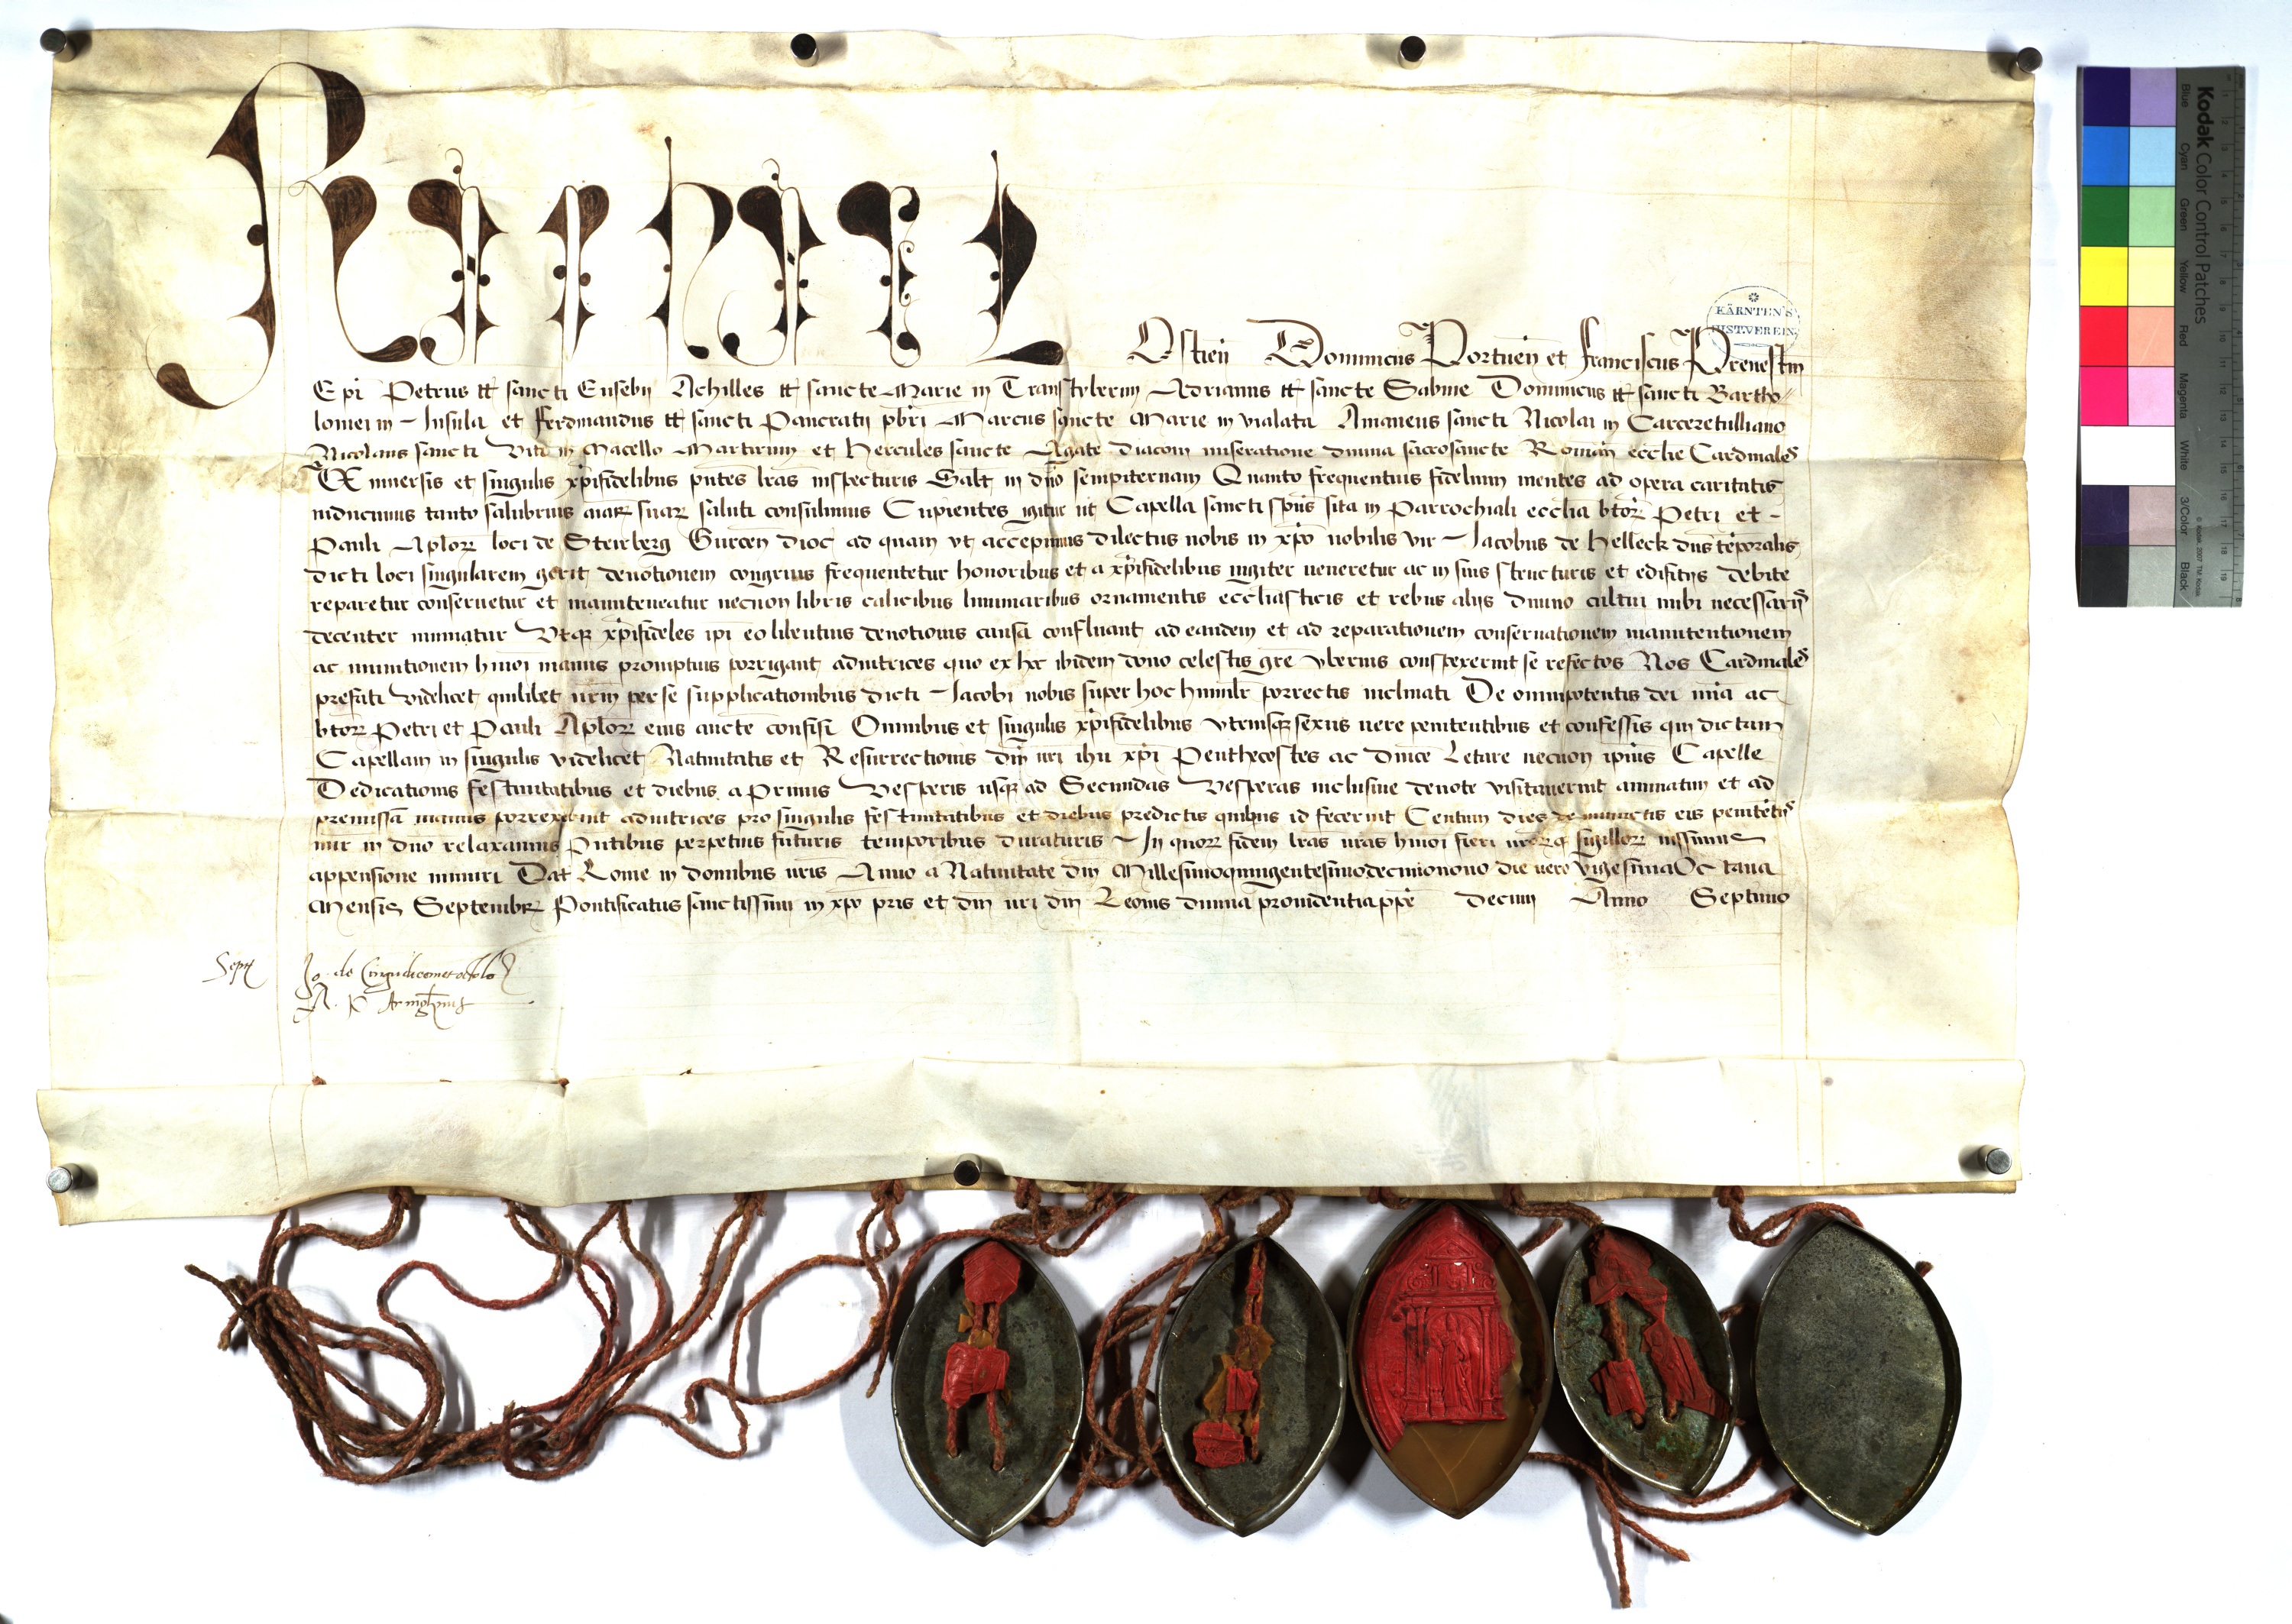 Raphael Ostieñ Dominicus Portueñ et Franciscus Prenestiñ
KÄRNTEN'S
HIST.VEREIN
Epi Petrus tt sancti Eusebij Achilles tt sancte Marie in Transtyberim Adrianus tt sancte Sabine Dominicus tt sancti Bartho
lomei in Insula et Ferdinandus tt sancti Pancratij pbri Marcus sancte Marie in vialata Amaneus sancti Nicolai in Carceretulliano
Nicolaus sancti Viti in Macello Martirum et Hercules sancte Agate diaconi miseratione diuina sacrosancte Romañ ecclie Cardinales
Vniuersis et singulis xpifidelibus pntes lras inspecturis Salt in dño sempiternam Quanto frequentius fidelium mentes ad opera caritatis
inducimus tanto salubrius aiar suar saluti consulimus Cupientes igitur ut Capella sancti spus sita in Parrochiali ecclia btor Petri et
Pauli Aplor loci de Steirberg Gurceñ dioc ad quam vt accepimus dilectus nobis in xpo nobilis vir Jacobus de Helleck dns temporalis
dicti loci singularem gerit deuotionem congruis frequentetur honoribus et a xpifidelibus iugiter ueneretur ac in suis structuris et edifitijs debite
reparetur conseruetur et manuteneatur necnon libris calicibus luminaribus ornamentis eccliasticis et rebus alijs diuino cultui inibi necessarijs
decenter muniatur Vtqz xpifideles ipi eo libentius deuotionis causa confluant ad eandem et ad reparationem conseruationem manutentionem
ac munitionem hmoi manus promptius porrigant adiutrices quo ex hoc ibidem dono celestis gre vberius conspexerint se refectos Nos Cardinales
prefati videlicet quilibet nrm per se supplicationibus dicti Jacobi nobis super hoc humilr porrectis inclinati De omnipotentis dei mia ac
btor Petri et Pauli Aplor eius aucte confisi Omnibus et singulis xpifidelibus vtriusqz sexus uere penitentibus et confessis qui dictam
Capellam in singulis videlicet Natiuitatis et Resurrectionis dni nri ihu xpi Penthecostes ac dnice Letare necnon ipius Capelle
Dedicationis festiuitatibus et diebus a Primis Vesperis usqz ad Secundas Vesperas inclusiue deuote visitauerint annuatim et ad
premissa manus porrexerint adiutrices pro singulis festiuitatibus et diebus predictis quibus id fecerint Centum dies de iniunctis eis penitetijs
mir in dño relaxamus Pntibus perpetuis futuris temporibus duraturis In quor fidem lras nras hmoi fieri nror qz sigillor iussimus
appensione muniri Dat Rome in domibus nris Anno a Natiuitate dni Millesimoquingentesimodecimonono die uero vigesimaOctaua
Mensis Septembr Pontificatus sanctissimi in xpo pris et dni nri dni Leonis diuina prouidentia ppe Decimi Anno Septimo
Sept Jo. de
Kodak Color Control Patches
Blue Cyan Green Yellow Red Magenta White 3/Color Black